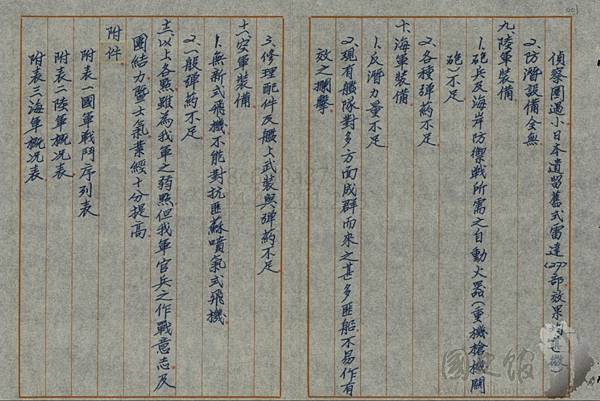 偵察圈過小日本遺留舊式雷達(27)部效果
2.防潛設備全無
九、陸軍裝備
1.砲兵及海岸防禦戰所需之自動火器(重機槍機關
砲)不足
2.各種彈葯不足
十、海軍裝備
1.反潛力量不足
2.現有艦隊對多方面成群而來之甚多匪船不易作有
效之攔擊
3.修理配件及艦上武裝與彈葯不足
十一、空軍裝備
1.無新式飛機不能對抗匪蘇噴氣式飛機
2.一般彈葯不足
十二、以上各點雖為我軍之弱點但我軍官兵之作戰意志及
團結力暨士氣業經十分提高
附件
附表一國軍戰鬥序列表
附表二陸軍概況表
附表三海軍概況表
國史館